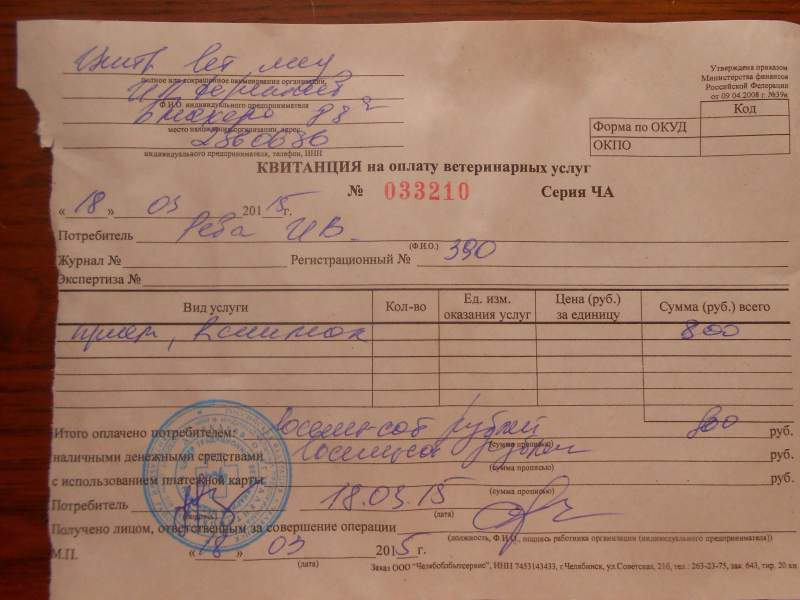 Центр вет мед
полное или сокращенное наименование организации,
ИП
Ф.И.О. индивидуального предпринимателя
место нахождения организации, адрес
2360636
индивидуального предпринимателя, телефон, ИНН
Утверждена приказом
Министерства финансов
Российской Федерации
от 09.04.2008 г. №39н
Код
Форма по ОКУД
ОКПО
КВИТАНЦИЯ на оплату ветеринарных услуг
№ 033210 Серия ЧА
« 18 » 03 2015г.
Потребитель Реба И В.
(Ф.И.О.)
Журнал № Регистрационный № 390
Экспертиза №
Вид услуги Кол-во Ед. изм. оказания услуг Цена (руб.) за единицу Сумма (руб.) всего
прием, 800
Итого оплачено потребителем: восемьсот рублей 800 руб.
(сумма прописью)
наличными денежными средствами восемьсот рублей руб.
(сумма прописью)
с использованием платежной карты руб.
(сумма прописью)
Потребитель 18.03.15
(дата)
Получено лицом, ответственным за совершение операции
(должность, Ф.И.О., подпись работника организации (индивидуального предпринимателя))
М.П. « 18 » 03 2015г.
(дата)
Заказ ООО "Челябобытсервис", ИНН 7453143433, г.Челябинск, ул.Советская, 21б, тел.: 263-23-75, зак. 643, тир. 20 кн